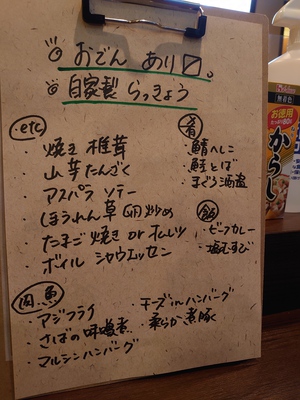 おでん あり〼。
自家製 らっきょう
・etc
焼き 椎茸
・山芋たんざく
・アスパラ ソテー
・ほうれん草 卵炒め
・たまご焼き or オムレツ
・ボイル シャウエッセン
肴
・鯖へしこ
・鮭とば
・まぐろ酒盗
飯
・ビーフカレー
・塩むすび
肉魚
・アジフライ
・さばの味噌煮
・マルシンハンバーグ
・チーズinハンバーグ
・柔らか煮豚
House
無着色
お徳用
からし